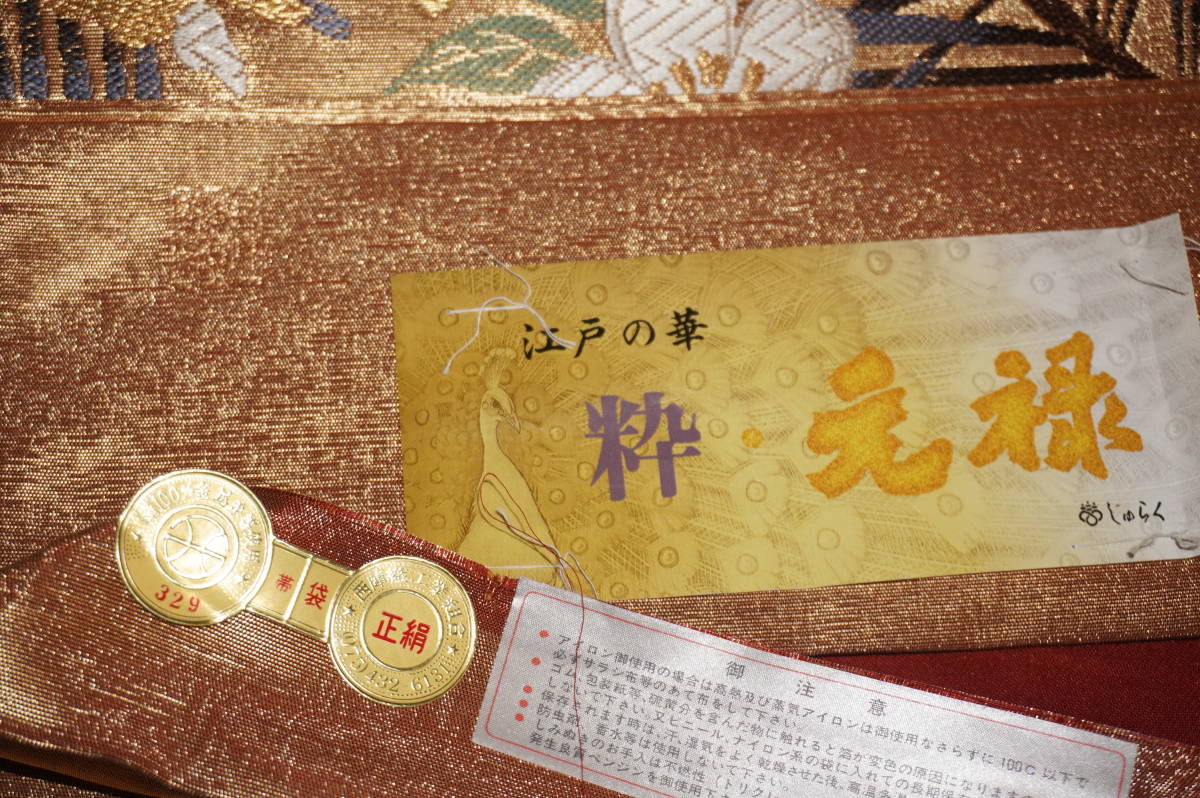 江戸の華
粋・元禄
じゅらく
329
帯袋
西陣織工業組合
正絹
075 432 6131
御注意
アイロン御使用の場合は高熱及び蒸気アイロンは御使用なさらずに100℃以下で
必ずサラシ布等のあて布をして下さい。
ゴム、包装紙等、硫黄分を含んだ物に触れると箔が変色の原因になりますので
しないで下さい。又ビニール・ナイロン系の袋に入れての長期保
保存されます時は、汗、湿気をよく乾燥させた後、高温多湿
防虫剤、香水等は使用しないで下さい。
しみぬきのお手入は不燃性（トリク
発生良質ベンジンを御使用下